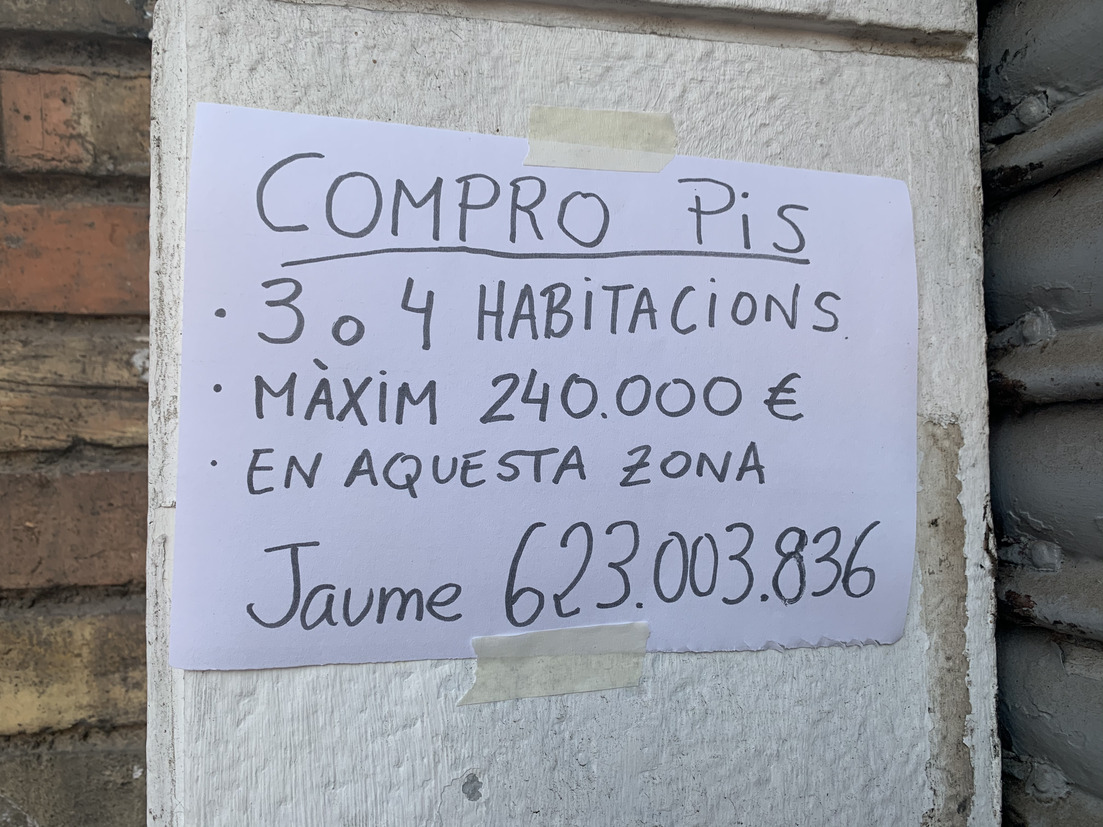 COMPRO PiS
· 3 o 4 HABiTACiONS.
· MÀXiM 240.000 €
· EN AQUESTA ZONA
Jaume 623.003.836